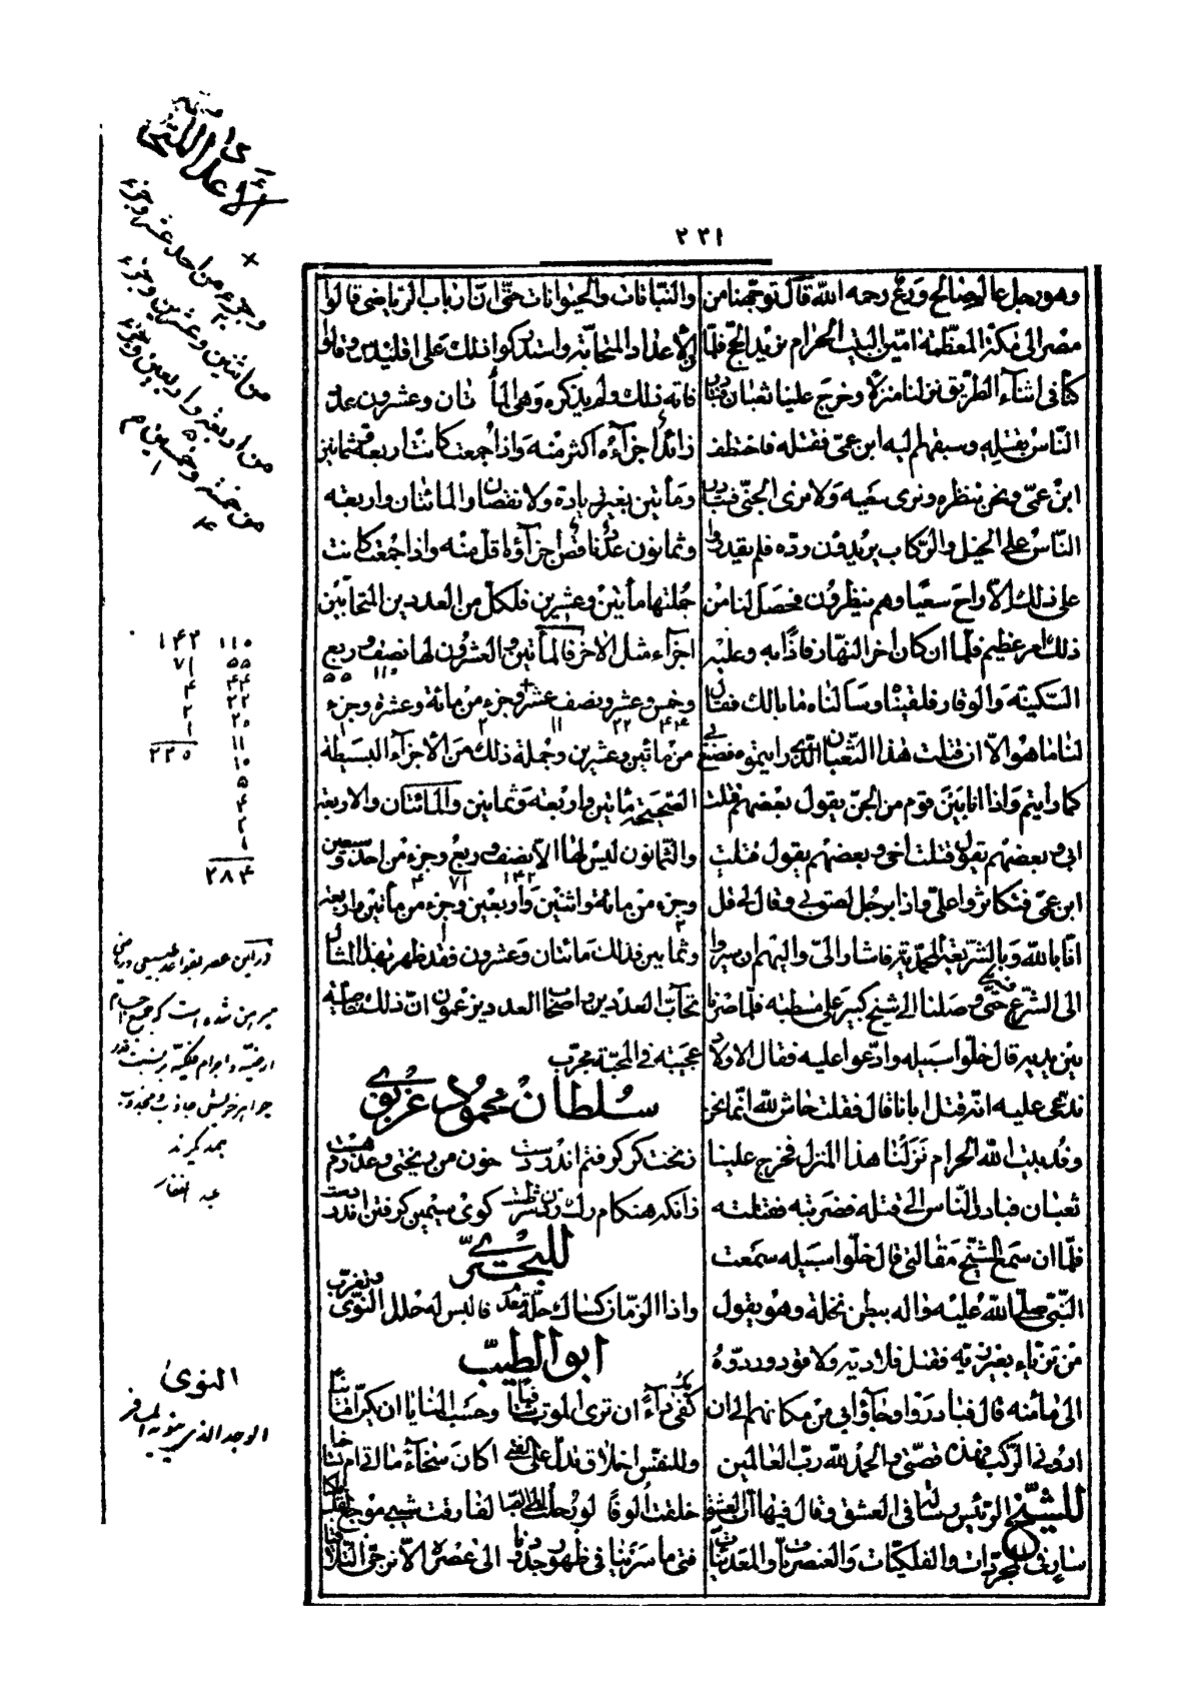 ٢٣١
وهو رجل عالم صالح ورع رحمه الله قال توجهنا من
مصر الى مكة المعظمة امّين البيت الحرام نريد الحج فلمّا
كنّا فى اثناء الطريق نزلنا منزلًا وخرج علينا ثعبان فتبادر
النّاس بقتله وسبقهم اليه ابن عمى فقتله فاختطف
ابن عمى ونحن ننظره ونرى سعيه ولا نرى الجنى فتبادر
النّاس على الخيل والركاب يريدون ردّه فلم يقدروا
على ذلك الا راح سعيا وهم ينظرون فحصل لنا من
ذلك امر عظيم فلمّا ان كان اخر النهار فاذا به وعليه
السكينة والوقار فلقيناه وسألناه ما بالك فقال
لنا ما هو الّا ان قتلت هذا الثعبان الذى رايتموه فصنع بى
كما رايتم واذا انا بين قوم من الجن يقول بعضهم قتلت
ابى وبعضهم يقول قتلت اخى وبعضهم يقول قتلت
ابن عمى فتكاثروا علىّ واذا برجل لصق بى وقال لى قل
انا بالله وبالشريعة المحمدية فاشار الىّ واليهم ان سيروا
الى الشرع حتى وصلنا الى شيخ كبير على مصطبة فلمّا صرنا
بين يديه قال خلّوا سبيله وادّعوا عليه فقال الاولاد
ندّعى عليه انه قتل ابانا قال فقلت حاش لله انما نحن
وفد بيت الله الحرام نزلنا هذا المنزل فخرج علينا
ثعبان فبادر الناس الى قتله فضربته فقتلته
فلمّا ان سمع الشيخ مقالتى قال خلّوا سبيله سمعت
النّبى صلى الله عليه واله ببطن نخلة وهو يقول
من تزيّا بغير زيه فقتل فلا دية ولا قود وردّوه
الى مأمنه قال فبادروا وجاؤا بى من مكانهم الى ان
اروني الركب فهذه قصّتى والحمد لله ربّ العالمين
للشيخ الرئيس رسالة فى العشق وقال فيها ان العشق
سار فى المجردات والفلكيات والعنصريات والمعدنيات
والنباتات والحيوانات حتى ان ارباب الرياضى قالوا
الأعداد المتحابة واستدركوا ذلك على اقليدس وقالوا
فاته ذلك ولم يذكره وهى المأتان وعشرون عدد
زائد اجزاءه اكثر منه واذا جمعت كانت اربعة وثمانين
ومأتين بغير زيادة ولا نقصان والمائتان واربعة
وثمانون عدد ناقص اجزاؤه اقل منه واذا جمعت كانت
جملتها مأتين وعشرين فلكل من العددين المتحابين
اجزاء مثل الاخر فالمأتين والعشرون لها نصف وربع
وخمس وعشر ونصف عشر وجزء من مائة وعشرة وجزء
من مأتين وعشرين وجملة ذلك من الأجزاء البسيطة
الصحيحة مأتين واربعة وثمانين والمائتان والاربعة
والثمانون ليس لها الا نصف وربع وجزء من احد وسبعين
وجزء من مائة واثنين وأربعين وجزء من مأتين واربعة
وثمانين فذلك مائتان وعشرون فقد ظهر بهذا المثال
تحابّ العددين واصحاب العدد يزعمون ان ذلك خاصية
عجيبة فى المحبة مجرّب
سلطان محمود غزنوى
للبحترىّ
واذا الزمان كساك حلّة معدم فالبس له حلل النوى وتغرّب
ابو الطيّب
كفى بك داءً ان ترى الموت شافيًا وحسب المنايا ان يكنّ امانيا
وللنفس اخلاق تدل على الفتى اكان سخاءً ما اتى ام تساخيا
خلقت ألوفًا لو رحلت الى الصبا لفارقت شيبى موجع القلب باكيا
فتى ما سرينا فى ظهور جدودنا الى عصره الا نرجّى التلاقيا
وجزء من احد عشر وجزء
من اثنين وعشرين وجزء
من اربعة واربعين وجزء
من خمسة وخمسين
١١٠
٥٥
٤٤
٢٢
٢٠
١١
١٠
٥
٤
٢
١
٢٨٤
١٤٢
٧١
٤
٢
١
٢٢٠
النوى